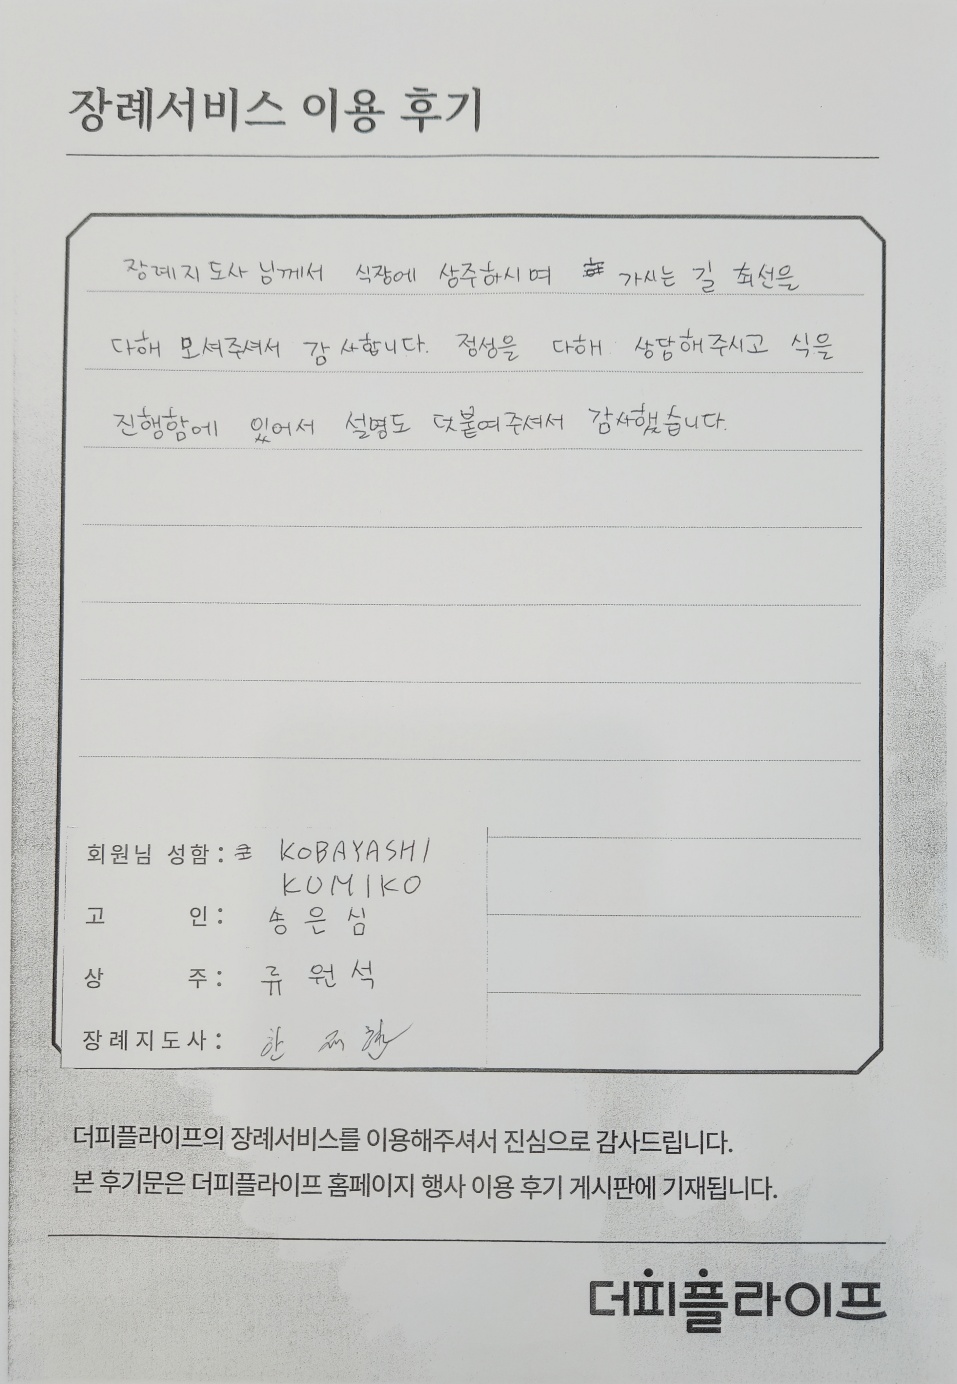 장례서비스 이용 후기
장례지도사님께서 식장에 상주하시며 가시는 길 최선을
다해 모셔주셔서 감사합니다. 정성을 다해 상담해주시고 식을
진행함에 있어서 설명도 덧붙여주셔서 감사했습니다.
회원님 성함: KOBAYASHI
KUMIKO
고 인: 송은심
상 주: 류원석
장례지도사: 한
더피플라이프의 장례서비스를 이용해주셔서 진심으로 감사드립니다.
본 후기문은 더피플라이프 홈페이지 행사 이용 후기 게시판에 기재됩니다.
더피플라이프